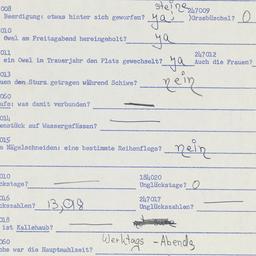 008 steine 247009
Beerdigung: etwas hinter sich geworfen? ya, )Grasbüschel? 0
010
Owal am Freitagabend hereingeholt? ya
011 247012
ein Owel im Trauerjahr den Platz gewechselt? ya Auch die Frauen?
013
uen den Sturz getragen während Schiwe? nein
060
ufe: was damit verbunden?
014
enstück auf Wassergefässen?
015
m Nägelschneiden: eine bestimmte Reihenfolge? nein
010 184020
ckstage? Unglückstage? 0
016 247017
ckszahlen? 13,98 Unglückszahlen?
018
ist Kallehaub?
060 Werktags - Abends
che war die Hauptmahlzeit?